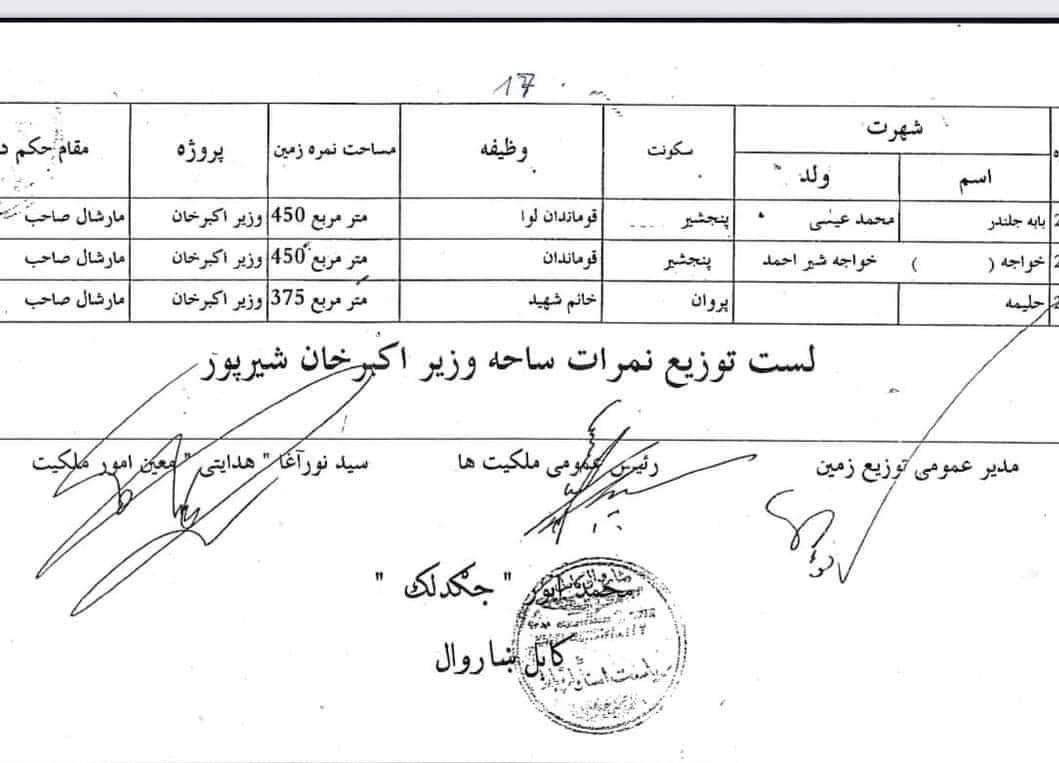 17
شهرت
سکونت
وظیفه
مساحت نمره زمین
پروژه
مقام حکم د
اسم
ولد
2 بابه جلندر محمد عیسی پنجشیر قوماندان لوا 450 متر مربع وزیر اکبرخان مارشال صاحب
2 خواجه ( ) خواجه شیر احمد پنجشیر قوماندان 450 متر مربع وزیر اکبرخان مارشال صاحب
2 حلیمه پروان خانم شهید 375 متر مربع وزیر اکبرخان مارشال صاحب
لست توزیع نمرات ساحه وزیر اکبرخان شیرپور
مدیر عمومی توزیع زمین
رئیس عمومی ملکیت ها
سید نورآغا " هدایتی " معین امور ملکیت
محمد انور " جگدلک "
کابل ښاروال